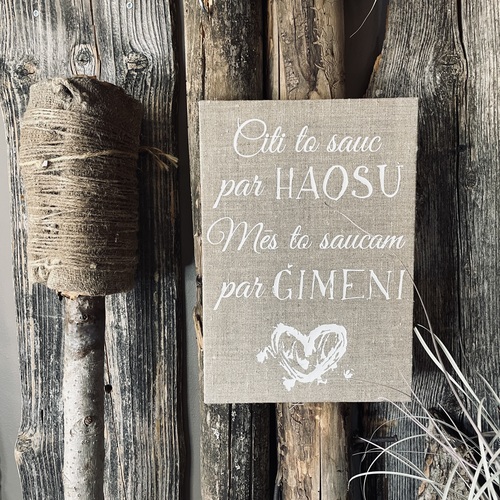 Citi to sauc
par HAOSU
Mēs to saucam
par ĢIMENI